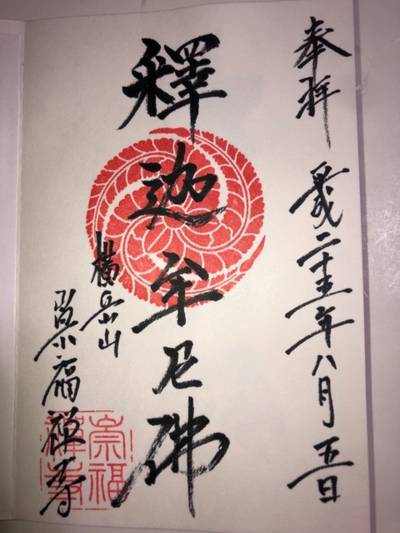 奉拝 平成二十五年八月五日
釋迦牟尼佛
横岳山
崇福禅寺
崇福
禪寺